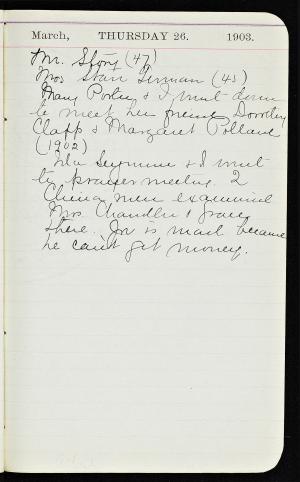 March, THURSDAY 26. 1903.
Mr. Story (47)
Mrs Starr (45)
Mary Porter & I went down
to meet her friend Dorothy
Clapp & Margaret Pollard
(1902)
Seymour & I went
to prayer meeting. 2
China men examined
Mrs. Chandler & Grace
there. Joe is mad because
he can't get money.